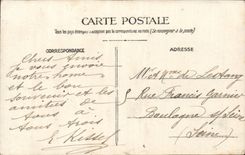 CARTE POSTALE
Tous les pays étrangers n'acceptent pas la correspondance au recto (Se renseigner à la poste)
CORRESPONDANCE
ADRESSE
Chers Amis
je vous envoie
notre home
et le bon
souvenir et les
amitiés de
nous à
tous trois
E. Kessel
Mr et Mme de Lestang
Rue Francis Garnier
Boulogne s/Seine
(Seine)